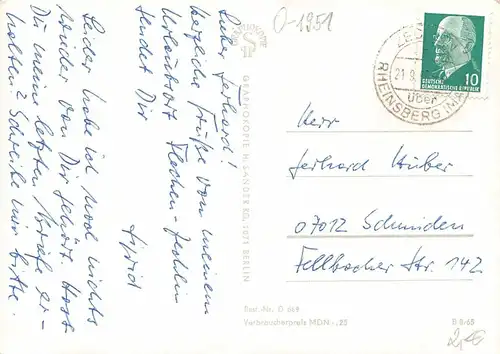 Lieber Gerhard!
Herzliche Grüße von meinem
Urlaubsort Flecken-Zechlin
sendet Dir
Sigrid
Leider habe ich noch nichts
wieder von Dir gehört. Hast
Du meine letzten Briefe er-
halten? Schreibe mir bitte.
O-1951
GRAPHOKOPIE H. SANDER KG, 1071 BERLIN
Best.-Nr. D 668
Verbraucherpreis MDN -,25
10
DEUTSCHE
DEMOKRATISCHE REPUBLIK
21.9.
über
RHEINSBERG (MARK)
Herr
Gerhard Huber
07012 Schmiden
Fellbacher Str. 142
B 8/65
2,-€